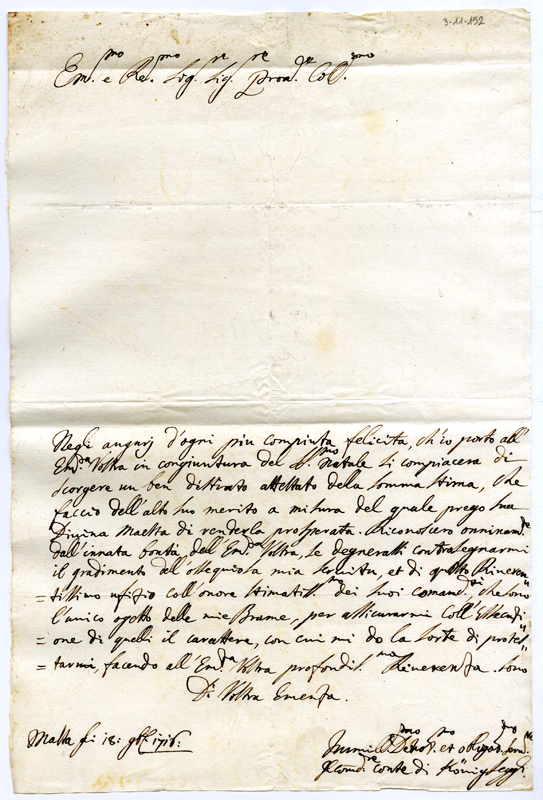 3-11-152
Em.mo e Re.mo Sig.re Sig.re Pron.e Col.mo
Negl'augurj d'ogni piu compiuta felicita, ch'io porto all'
Em.za Vostra in congiuntura del S.mo Natale si compiacera di
scorgere un ben distinto attestato della somma stima, che
faccio dell'alto suo merito a misura del quale prego sua
Divina Maesta di renderla prosperata. Riconoscero onninam.e
dall'innata bontà dell'Em.za Vostra, se degnerassi contrasegnarmi
il gradimento dell'ossequiosa mia servitu, et di questo Riveren=
=tissimo ufizio coll'onore stimatis.mo dei suoi comandi, che sono
l'unico ogetto delle mie Brame, per assicurarmi coll'essecuzi=
=one di quelli il carattere, con cui mi do la sorte di protes=
=tarmi, facendo all'Em.za Vostra profondis.ma Riverenza sono
Di Vostra Emenza.
Malta li 18: 9bre 1716:
Conte di Königsegg